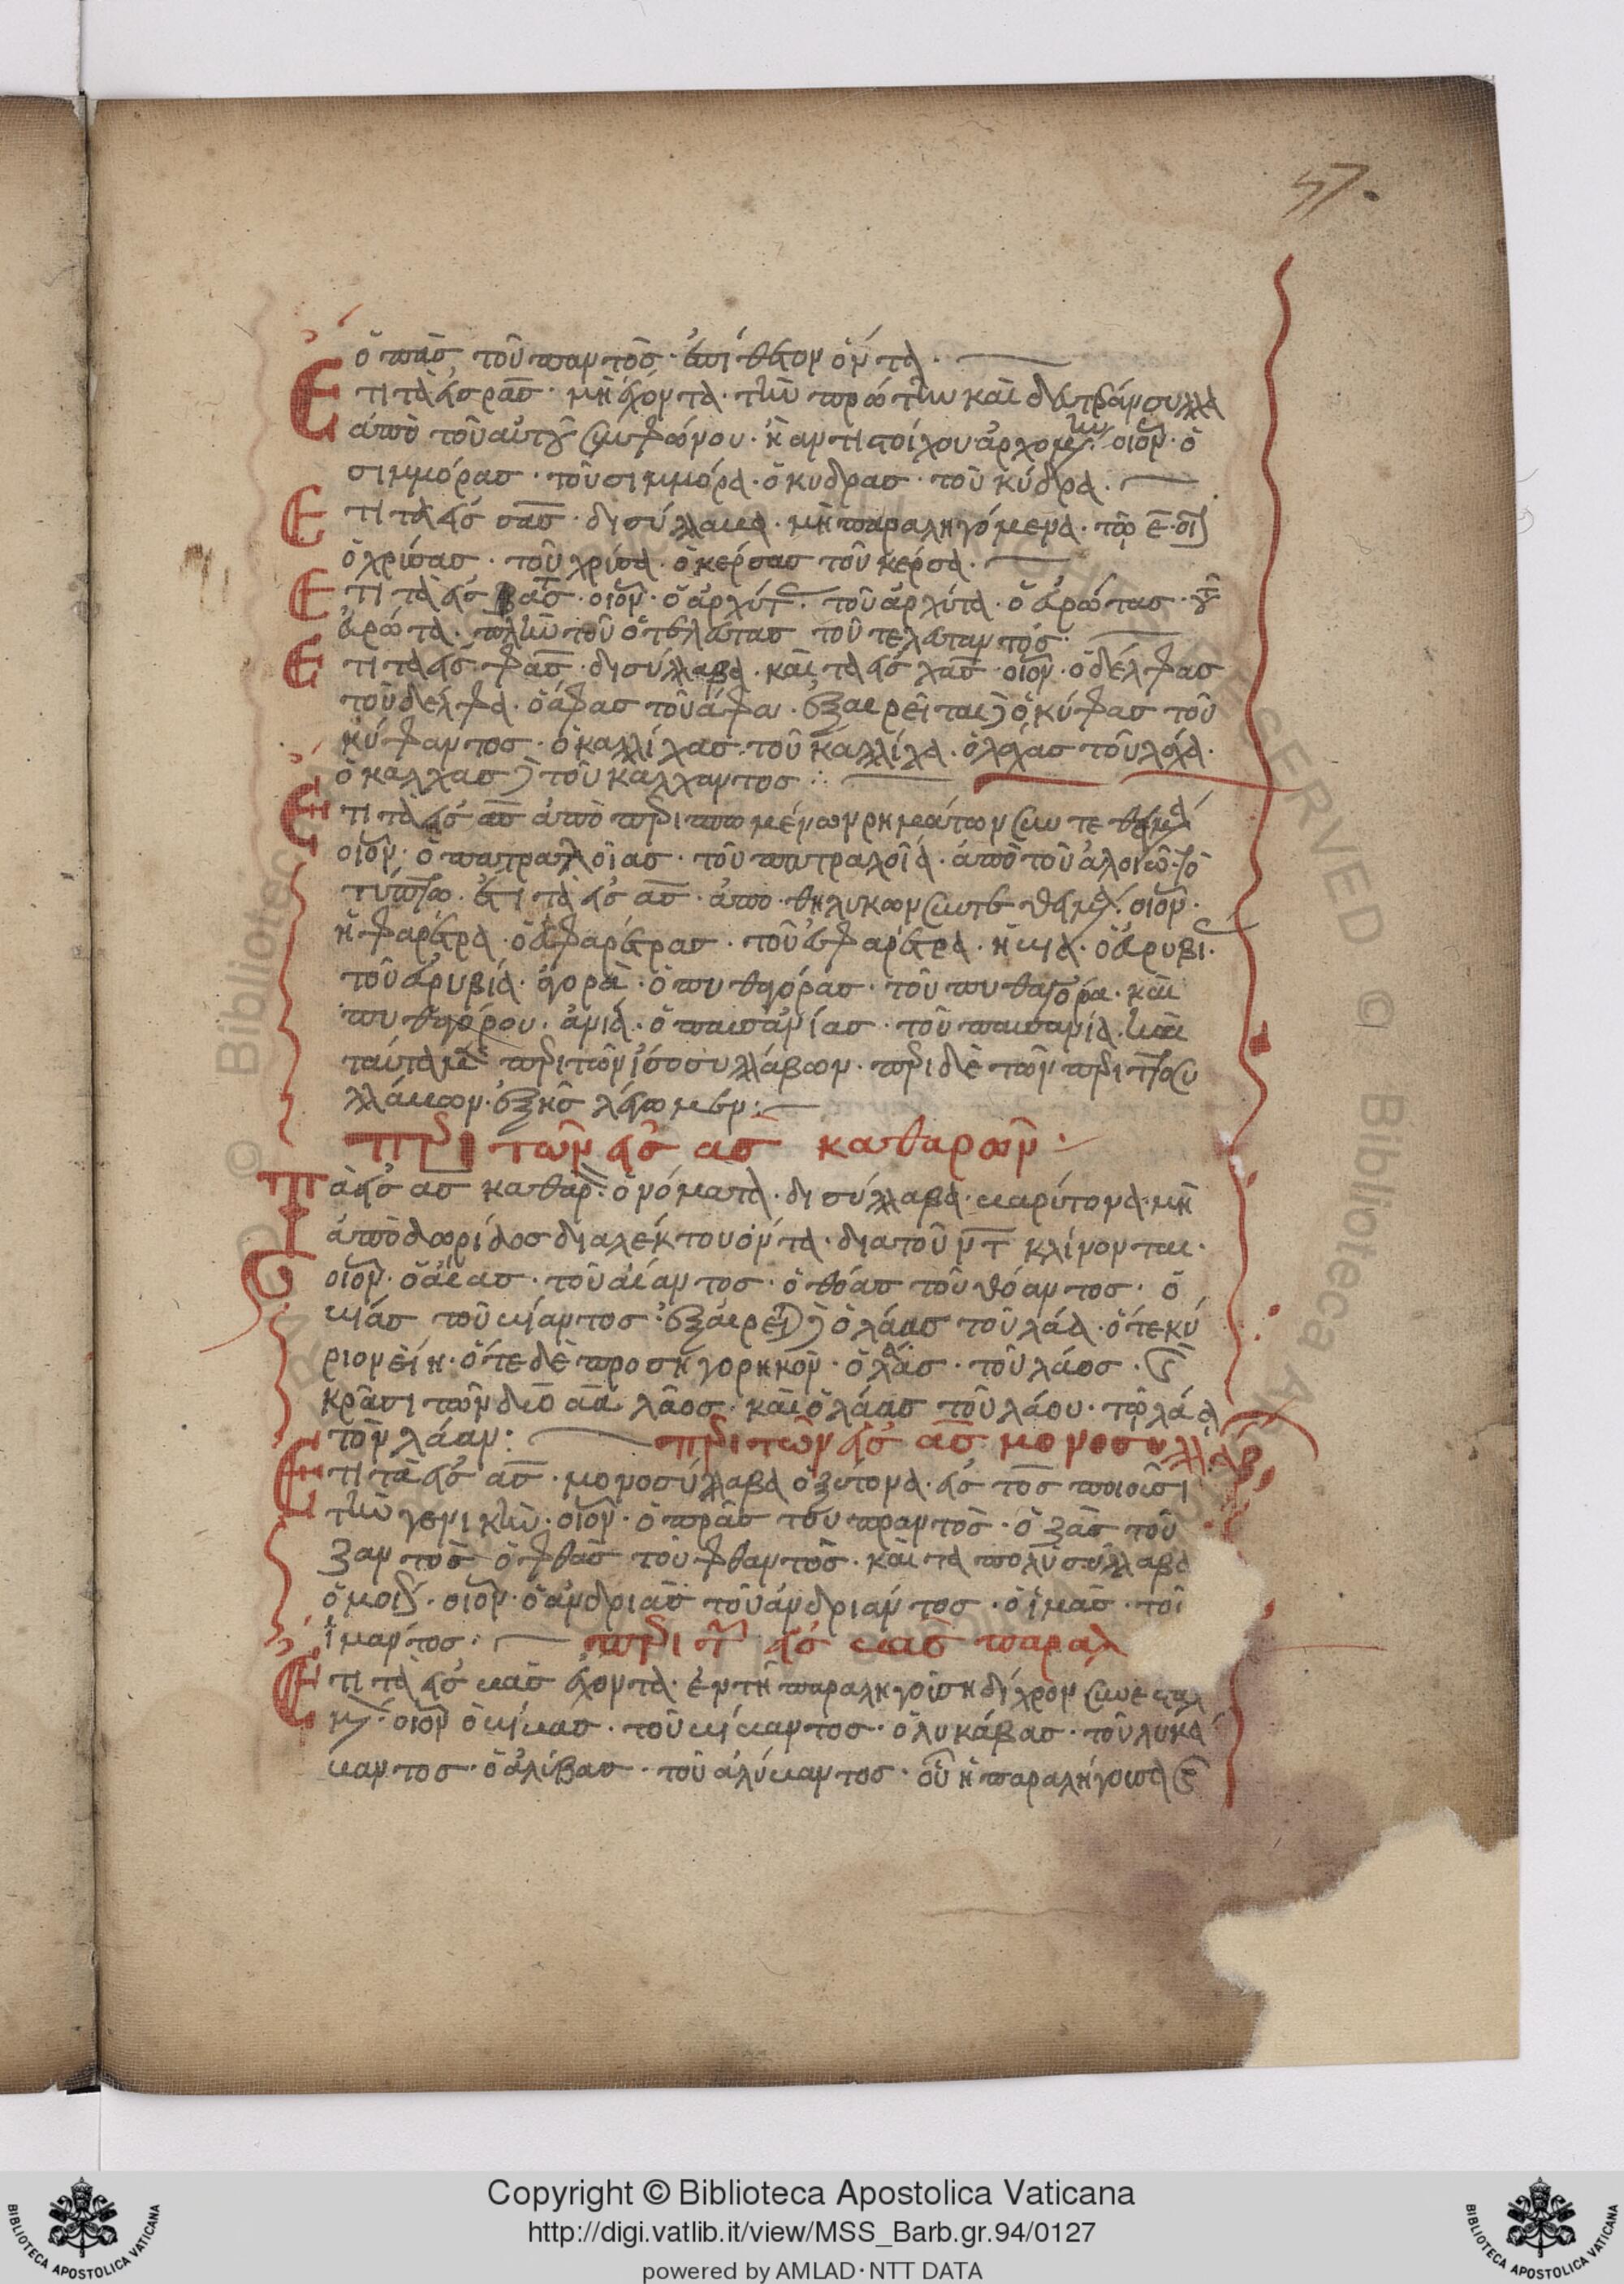 57.
ὁ πᾶς τοῦ παντὸς· ἐπίθετον ὄντα·
Ἔτι τὰ εἰς ρας· μὴ ἔχοντα· τὴν πρώτην καὶ δευτέραν συλλα
ἀπὸ τοῦ αὐτοῦ συμφώνου· ἢ ἀντιστοίχου ἀρχομένην· οἷον· ὁ
σιμμόρας· τοῦ σιμμόρα· ὁ κυδρας· τοῦ κύδρα·
Ἔτι τὰ εἰς σας· δισύλλαβα· μὴ παραληγόμενα· τῷ ε· οἷον
ὁ χρίσας· τοῦ χρίσα· ὁ κέρσας τοῦ κέρσα·
Ἔτι τὰ εἰς τας· οἷον· ὁ ἀρχύτας· τοῦ ἀρχύτα· ὁ εὐρώτας· τοῦ
εὐρώτα· πλὴν τοῦ ὁ τελευτας τοῦ τελευταντός·
Ἔτι τὰ εἰς φας· δισύλλαβα· καὶ τὰ εἰς λας· οἷον· ὁ δέλφας
τοῦ δέλφα· ὁ ἄφας τοῦ ἄφα· ἐξαιρεῖται δὲ ὁ κύφας τοῦ
κύφαντος· ὁ καλλίχας· τοῦ καλλίχα· ὁ λάχας τοῦ λάχα·
ὁ καλχας δὲ τοῦ καλχαντος
Ἔτι τὰ εἰς ας ἀπὸ περισπωμένων ρημάτων συντεθειμένα
οἷον· ὁ πατραλοίας· τοῦ πατραλοία· ἀπὸ τοῦ ἀλοιῶ· τὸ
τύπτω· ἔτι τὰ εἰς ας· ἀπο θηλυκων συντεθειμένα· οἷον·
ἡ φαρέτρα· ὁ εὐφαρέτρας· τοῦ εὐφαρέτρα· ἡ βία· ὁ εὐρυβίας·
τοῦ εὐρυβία· ἀγορὰ· ὁ πυθαγόρας· τοῦ πυθαγόρα· καὶ
πυθαγόρου· ἀνία· ὁ παυσανίας· τοῦ παυσανία· καὶ
ταῦτα μὲν περὶ τῶν ἰσοσυλλάβων· περὶ δὲ τῶν περιττοσυ
λλάβων· ἑξῆς λέγωμεν·
περὶ τῶν εἰς ας καθαρῶν·
Τὰ εἰς ας καθαρὸν· ὀνόματα· δισύλλαβα· βαρύτονα· μὴ
ἀπὸ δωρίδος διαλέκτου ὄντα· διὰ τοῦ ντ κλίνονται·
οἷον· ὁ αἴας· τοῦ αἴαντος· ὁ θόας τοῦ θόαντος· ὁ
βίας τοῦ βίαντος· ἐξαιρεῖται δὲ ὁ λάας τοῦ λάα· ὅτε κύ
ριον εἴη· ὅτε δὲ προσηγορηκὸν· ὁ λᾶας· τοῦ λάαος·
κράσι τῶν δύο αα λᾶος· καὶ ὁ λάας τοῦ λάου· τῷ λάα
τὸν λάαν: περὶ τῶν εἰς ας μονοσυλλάβ
Ἔτι τὰ εἰς ας· μονοσύλλαβα ὀξύτονα· εἰς τος ποιοῦσι
τὴν γενικὴν· οἷον· ὁ πρὰς του πραντὸς· ὁ ζὰς τοῦ
ζαντὸς ὁ φθὰς τοῦ φθαντὸς· καὶ τα πολυσύλλαβα
ὁμοίως· οἷον· ὁ ἀνδριὰς τοῦ ἀνδριάντος· ὁ ἱμὰς· τοῦ
ἱμάντος: περὶ τῶν εἰς βας παραλ
Ἔτι τὰ εἰς βας ἔχοντα· ἐν τῇ παραληγούση δίχρονον συνεσταλ
μένον· οἷον ὁ βίβας· τοῦ βίβαντος· ὁ λυκάβας· τοῦ λυκά
βαντος· ὁ ἀλίβας· τοῦ ἀλίβαντος· οὗ ἡ παραλήγουσα
Copyright © Biblioteca Apostolica Vaticana
http://digi.vatlib.it/view/MSS_Barb.gr.94/0127
powered by AMLAD·NTT DATA
BIBLIOTECA APOSTOLICA VATICANA
BIBLIOTECA APOSTOLICA VATICANA